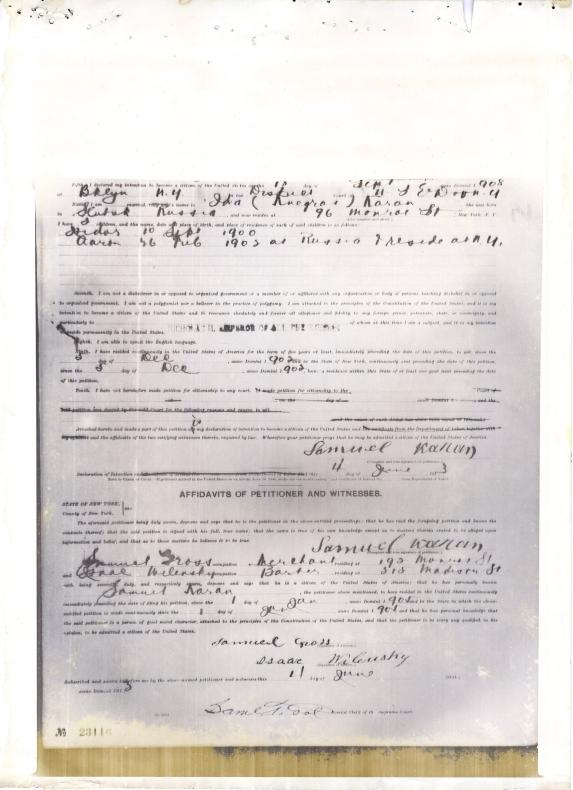 Fifth. I declared my intention to become a citizen of the United States on the 18 day of Sept , anno Domini 1908
at Bklyn N.Y. in District Court U S E D of N.Y
Sixth. I am married. My wife's name is Ida ( ) Karan She was born
in Russia , and now resides at 96 Monroe St New York, N. Y.
I have 2 children, and the name, date and place of birth, and place of residence of each of said children is as follows:
Isidor 10 Sept 1900
Aaron 26 Feb 1902 at Russia & reside at N.Y.
Seventh. I am not a disbeliever in or opposed to organized government or a member of or affiliated with any organization or body of persons teaching disbelief in or opposed
to organized government. I am not a polygamist nor a believer in the practice of polygamy. I am attached to the principles of the Constitution of the United States, and it is my
intention to become a citizen of the United States and to renounce absolutely and forever all allegiance and fidelity to any foreign prince, potentate, state, or sovereignty, and
particularly to NICHOLAS II, EMPEROR OF ALL THE RUSSIAS of whom at this time I am a subject, and it is my intention
to reside permanently in the United States.
Eighth. I am able to speak the English language.
Ninth. I have resided continuously in the United States of America for the term of five years at least, immediately preceding the date of this petition, to wit, since the
3 day of Dec , anno Domini 1902 in the State of New York, continuously next preceding the date of this petition,
since the 3 day of Dec , anno Domini 1902, being a residence within this State of at least one year next preceding the date
of this petition.
Tenth. I have not heretofore made petition for citizenship to any court. I made petition for citizenship to the Court of
on the day of anno Domini 1 and the
said petition was denied by the said Court for the following reasons and causes, to wit,
and the cause of such denial has since been cured or removed.
Attached hereto and made a part of this petition is my declaration of intention to become a citizen of the United States and the certificate from the Department of Labor together with
my petition and the affidavits of the two verifying witnesses thereto, required by law. Wherefore your petitioner prays that he may be admitted a citizen of the United States.
Samuel Karan
(Complete and true signature of petitioner.)
Declaration of Intention
4 day of June 1913
AFFIDAVITS OF PETITIONER AND WITNESSES.
STATE OF NEW YORK,
County of New York, ss:
The aforesaid petitioner being duly sworn, deposes and says that he is the petitioner in the above-entitled proceedings; that he has read the foregoing petition and knows the
contents thereof; that the said petition is signed with his full, true name; that the same is true of his own knowledge except as to matters therein stated to be alleged upon
information and belief, and that as to those matters he believes it to be true.
Samuel Karan
Samuel Gross occupation Merchant residing at 193 Monroe St
and Isaac Wilensky occupation Barber residing at 313 Madison St
each being severally, duly, and respectively sworn, deposes and says that he is a citizen of the United States of America; that he has personally known
Samuel Karan , the petitioner above mentioned, to have resided in the United States continuously
immediately preceding the date of filing his petition, since the 1 day of Jan , anno Domini 190 and in the State in which the above-
entitled petition is made continuously since the 1 day of Jan anno Domini 190 and that he has personal knowledge that
the said petitioner is a person of good moral character, attached to the principles of the Constitution of the United States, and that the petitioner is in every way qualified, in his
opinion, to be admitted a citizen of the United States.
Samuel Gross
Isaac Wilensky
Subscribed and sworn to before me by the above-named petitioner and witnesses this 4 day of June
anno Domini 1913
Special Clerk of the Supreme Court.
№ 23116